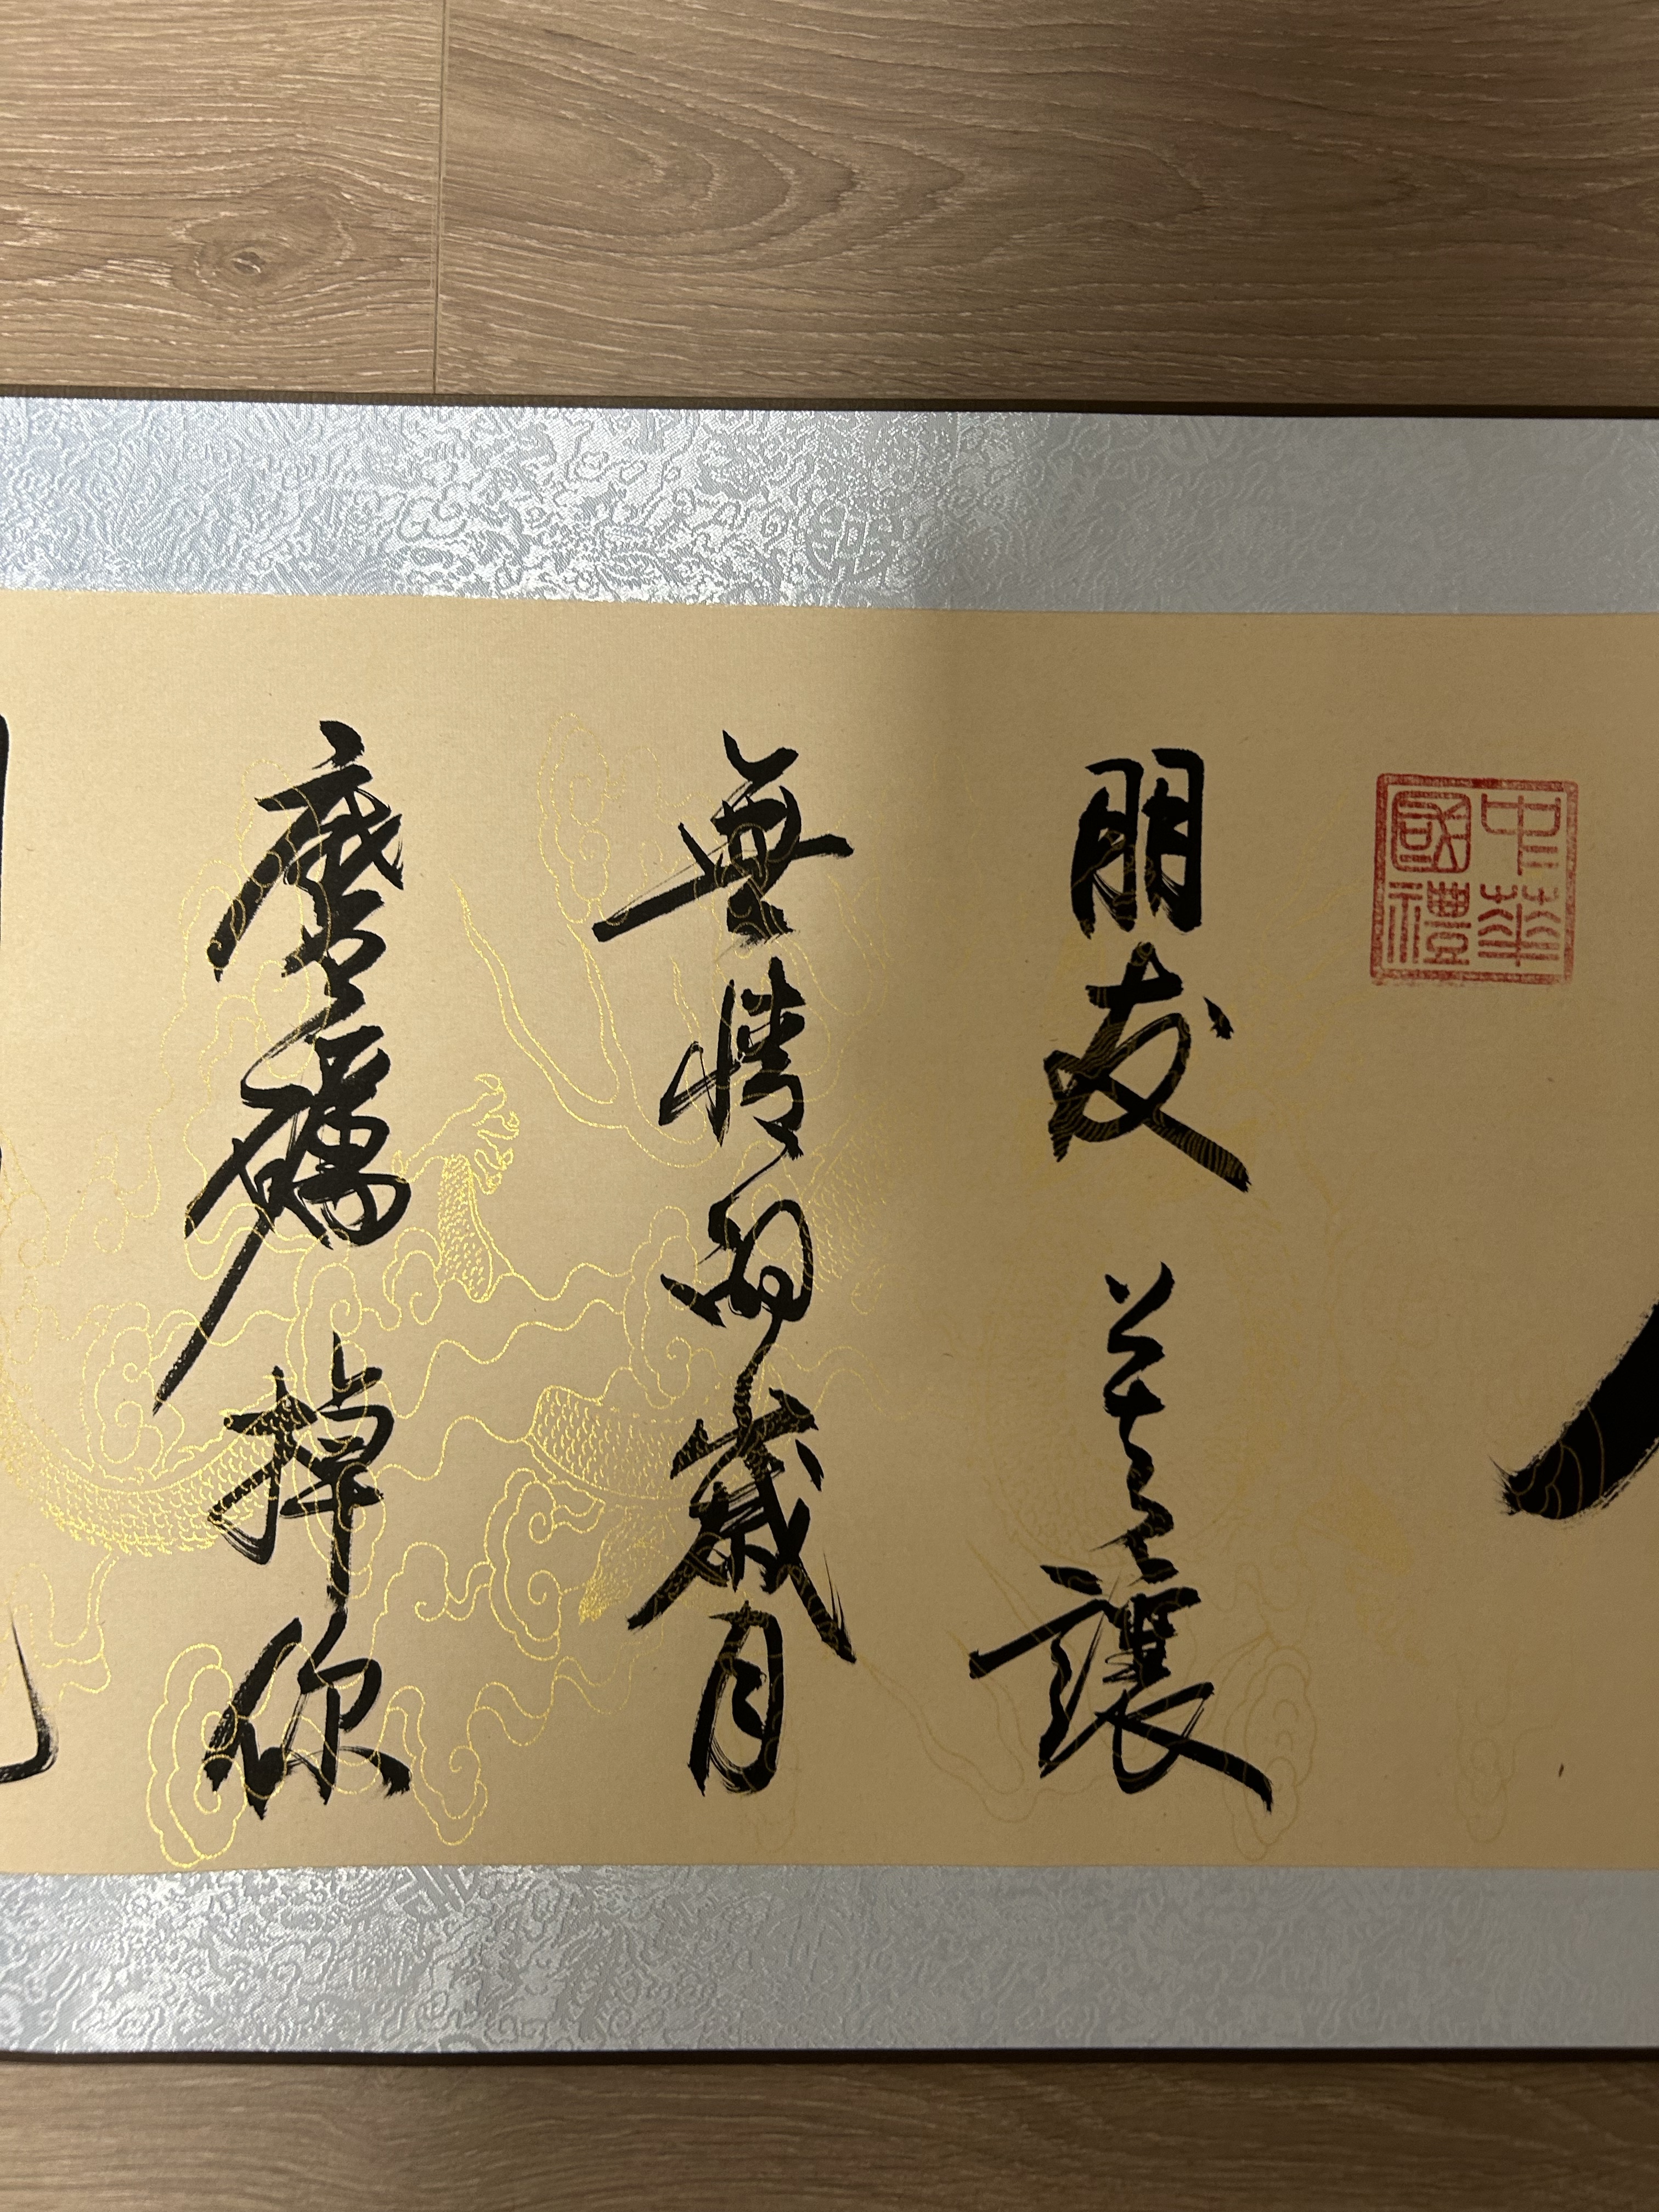 中華國禮
朋友 讓
無情的歲月
磨礪掉你